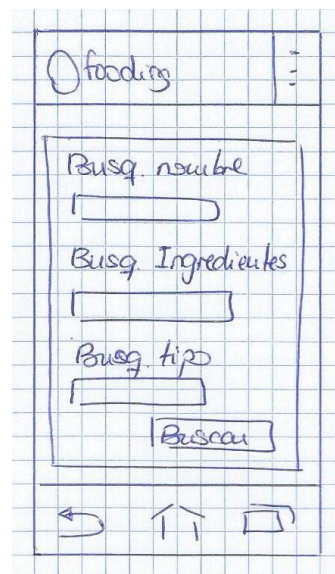 foodies
Busq. nombre
Busq. Ingredientes
Busq. tipo
Buscar